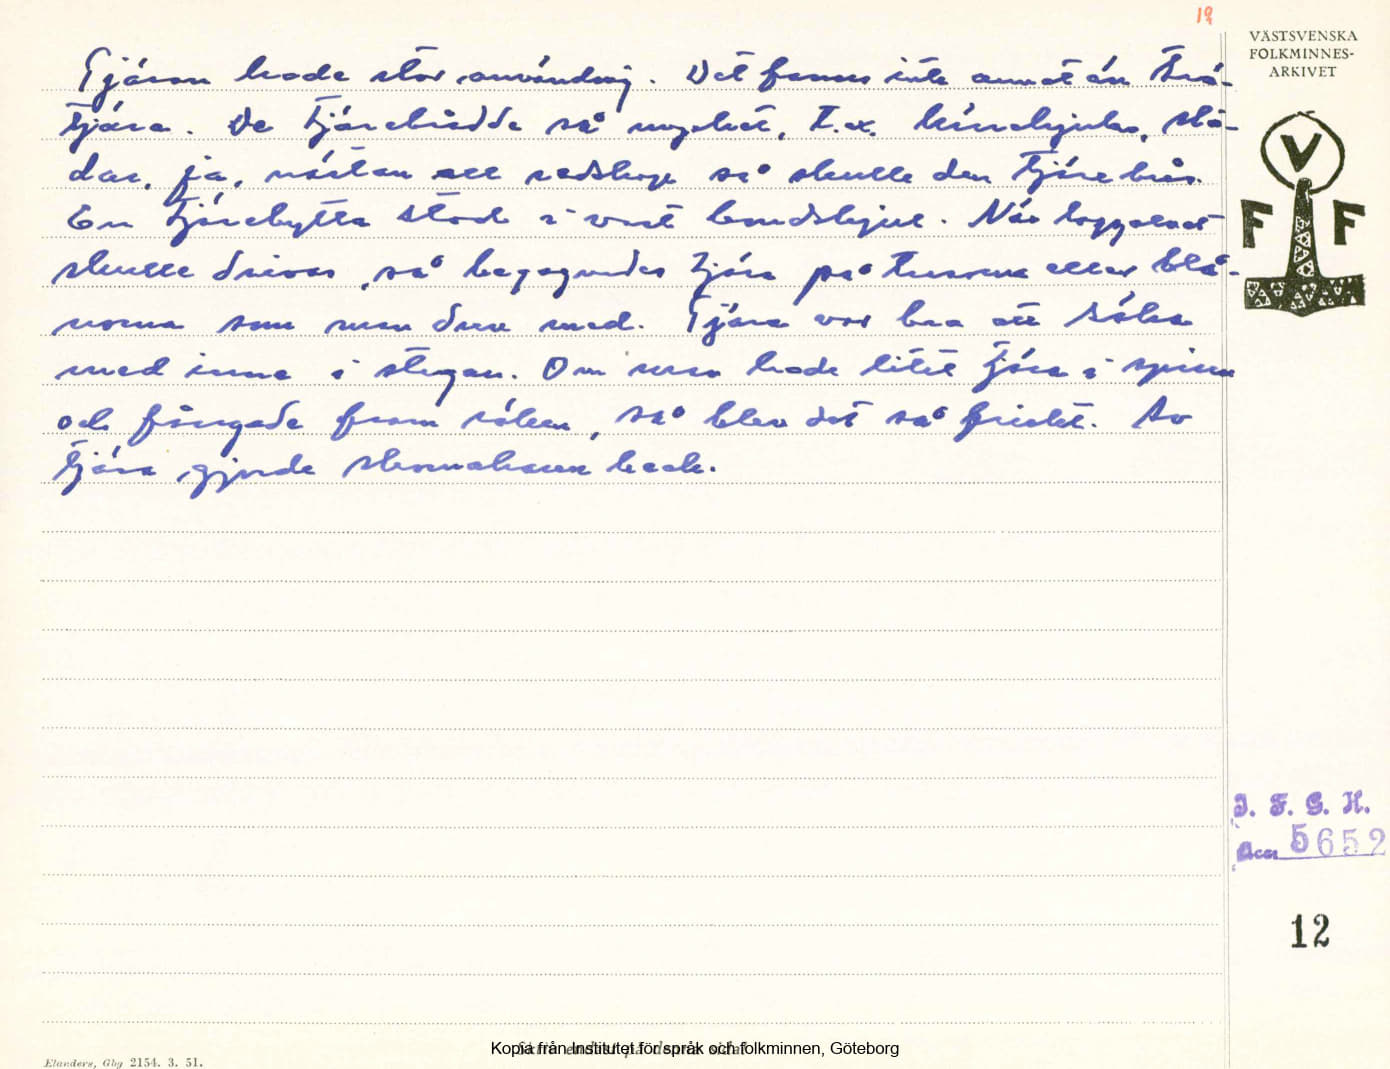 19
VÄSTSVENSKA
FOLKMINNES-
ARKIVET
V
F F
Tjäran hade stor användnig. Det fanns inte annat än trä-
tjära. De tjärebrådde så mycket, t.ex. kärrehjulen, slä-
dar, ja, nästan all redskap så skulle den tjärebrås.
En tjärebytta stod i vart bondshjul. När
skulle drivas, så begagnades tjära på eller blå-
norna som man drev med. Tjära var bra att röka
med inne i stugan. Om man hade litet tjära i spisen
och fångade fram röken, så blev det så friskt. Av
tjära gjorde skomakaren beck.
I. F. G. H.
Acc 5652
12
Elanders, Gbg 2154. 3. 51.
Kopia från Institutet för språk och folkminnen, Göteborg